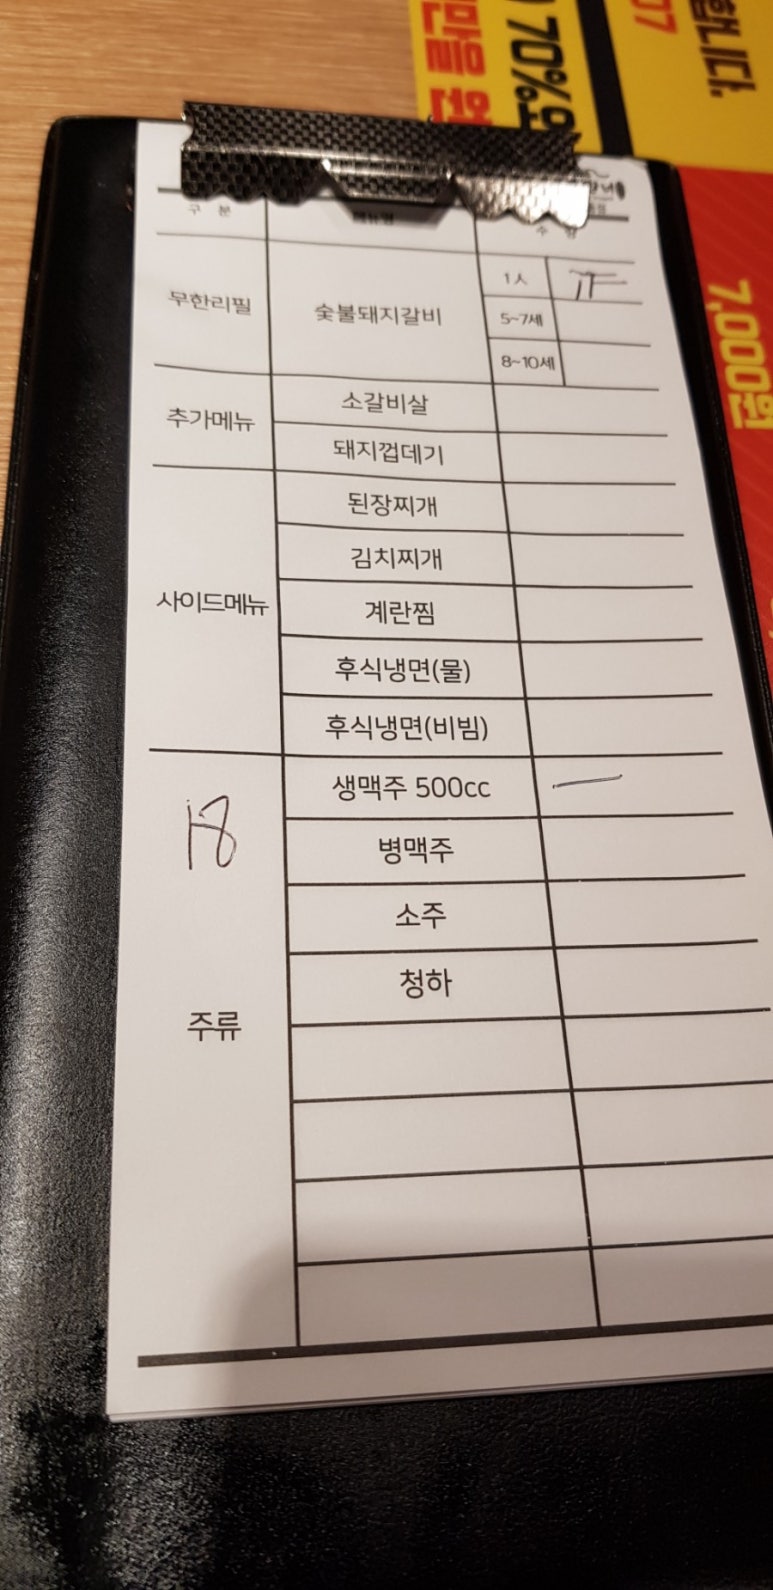 70%
만을
합니다.
7,000원
구 분 메뉴명 수 량
무한리필 숯불돼지갈비 1人
5~7세
8~10세
추가메뉴 소갈비살
돼지껍데기
사이드메뉴 된장찌개
김치찌개
계란찜
후식냉면(물)
후식냉면(비빔)
18
주류 생맥주 500cc 一
병맥주
소주
청하